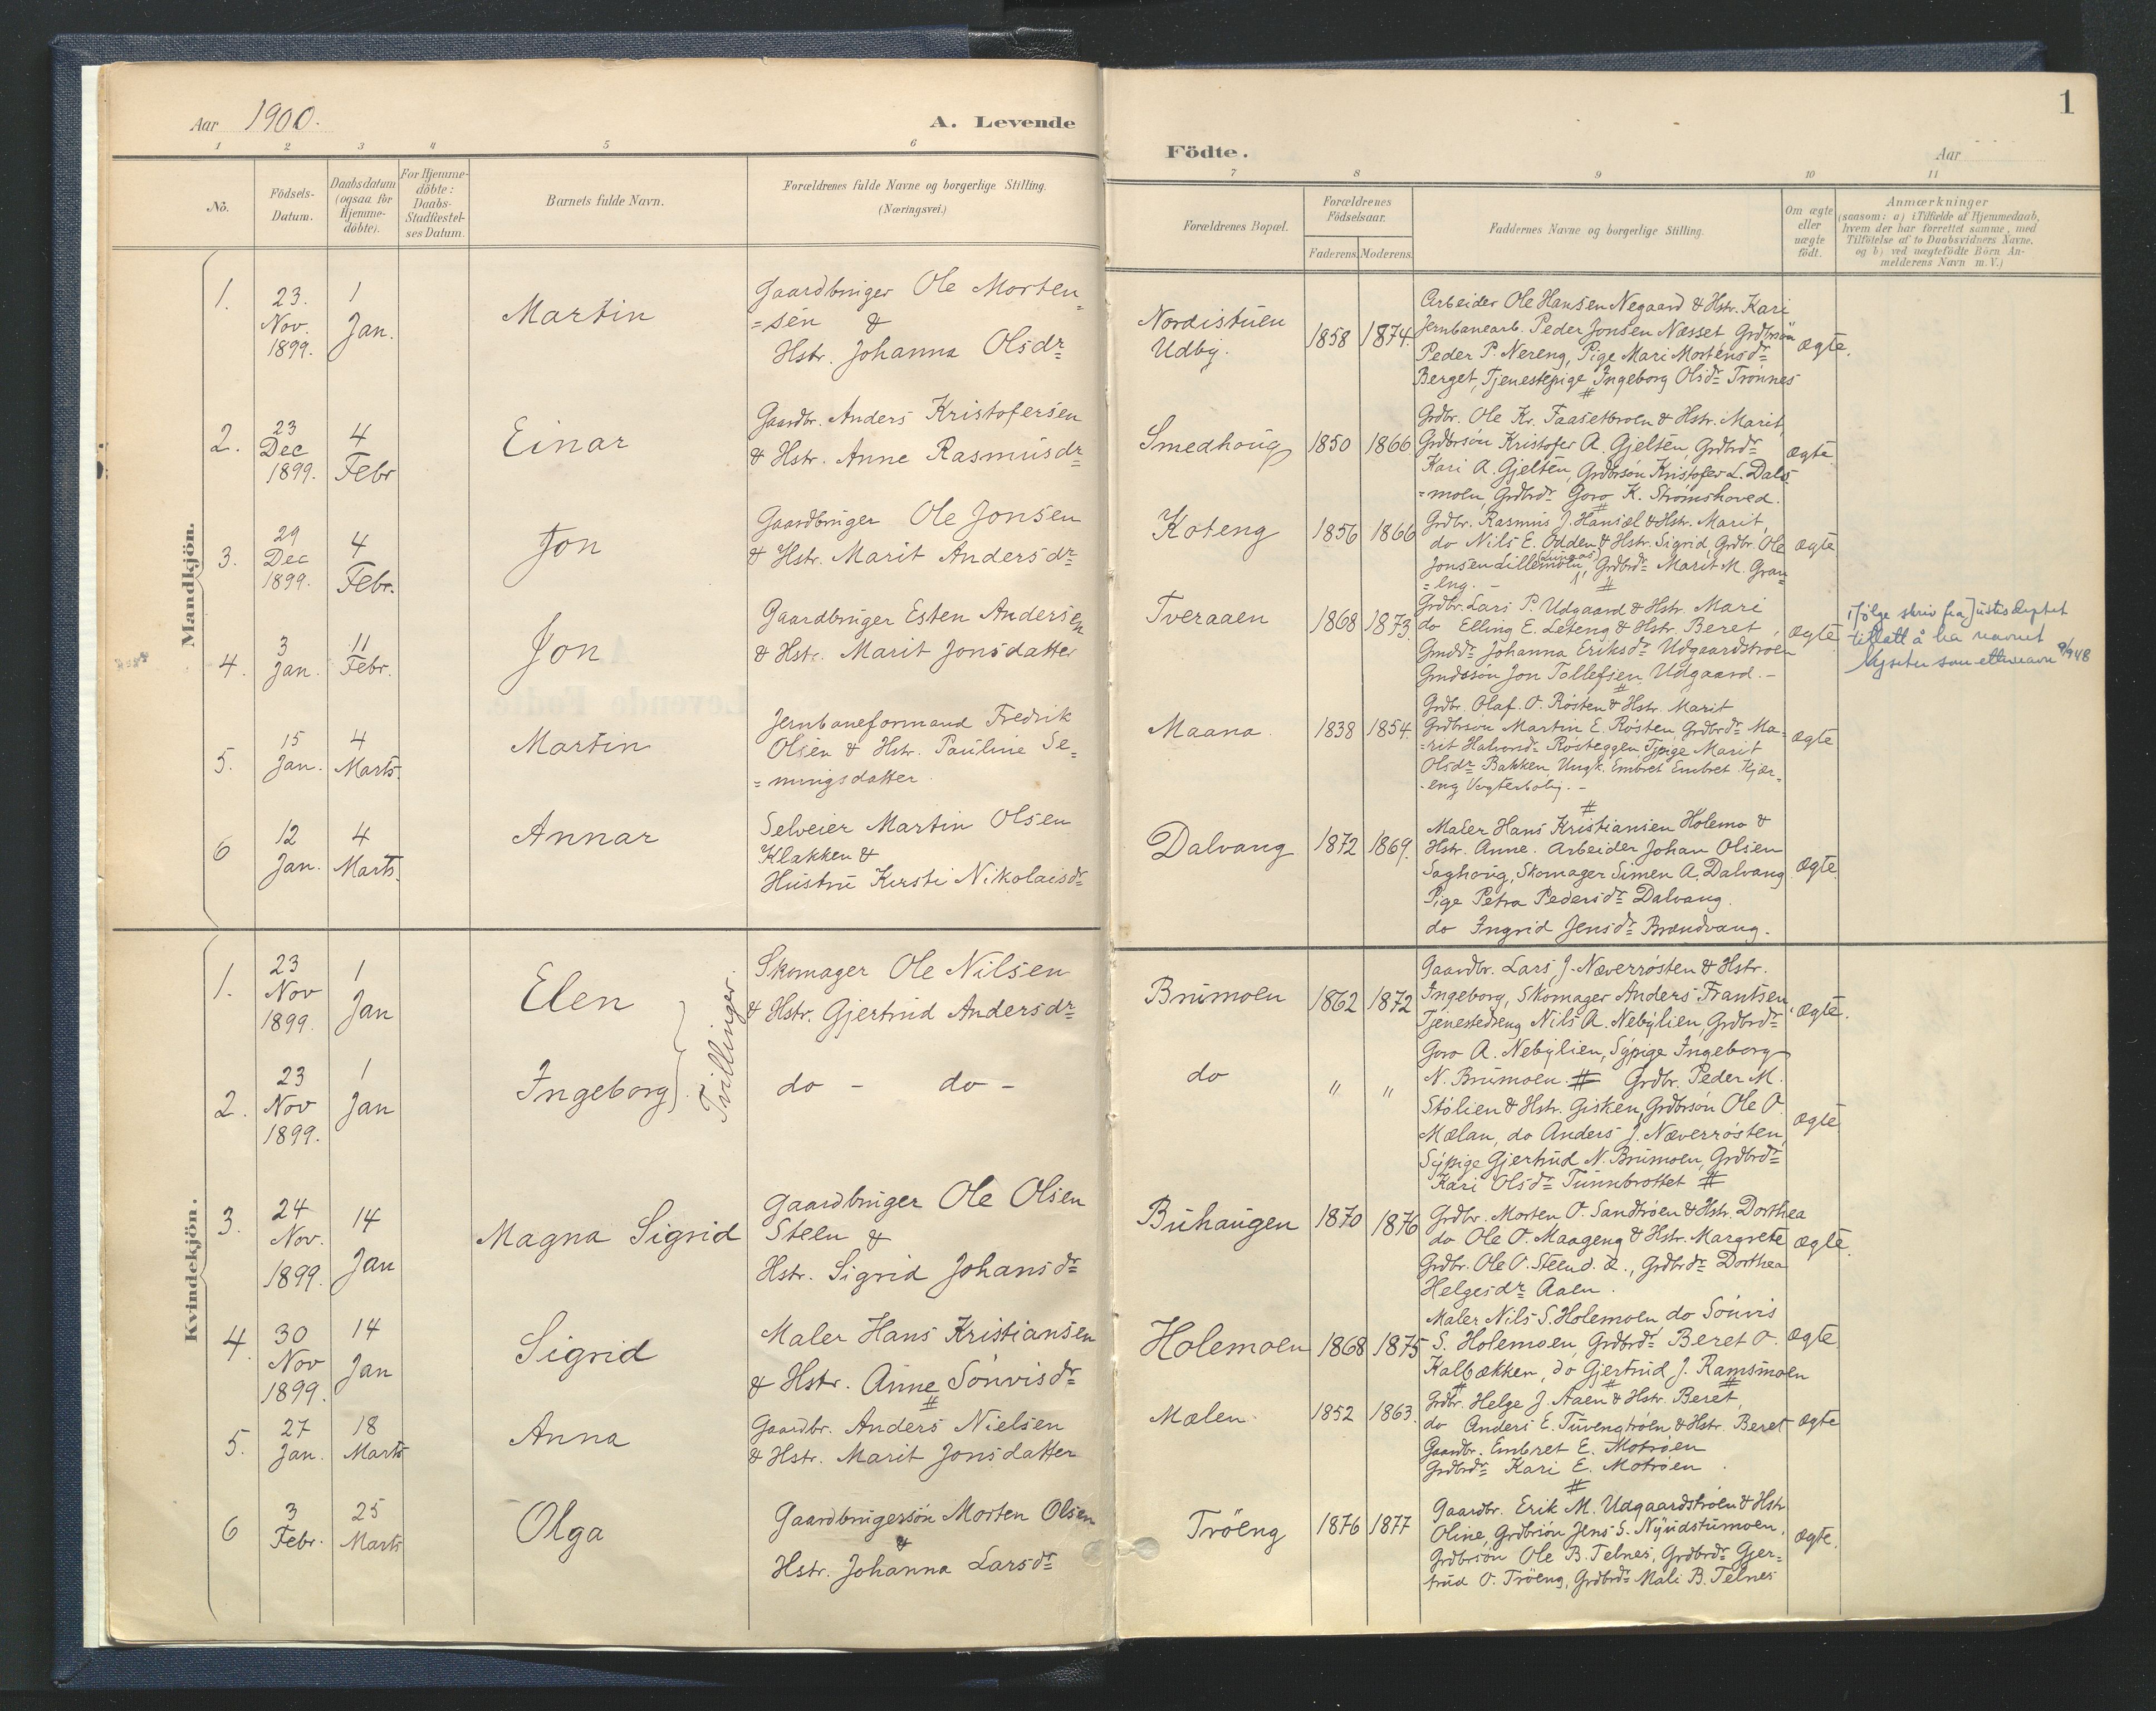 Aar 1900.
A. Levende
1 2 3 4 5 6
Nô.
Födsels-
Datum.
Daabsdatum
(ogsaa for
Hjemme-
döbte).
For Hjemme-
döbte:
Daabs-
Stadfæstel-
ses Datum.
Barnets fulde Navn.
Forældrenes fulde Navne og borgerlige Stilling.
(Næringsvei.)
Mandkjön.
1.
23.
Nov.
1899.
1
Jan.
Martin
Gaardbruger Ole Morten=
=sen &
Hstr. Johanna Olsdr
2.
23
Dec
1899.
4
Febr
Einar
Gaardbr. Anders Kristofersen
& Hstr. Anne Rasmusdr
3.
29
Dec
1899.
4
Febr.
Jon
Gaardbruger Ole Jonsen
& Hstr. Marit Andersdr
4.
3
Jan.
11
Febr.
Jon
Gaardbruger Esten Andersen
& Hstr. Marit Jonsdatter
5.
15
Jan.
4
Marts.
Martin
Jernbaneformand Fredrik
Olsen & Hstr. Pauline Se=
=mingsdatter.
6
12
Jan.
4
Marts.
Annar
Selveier Martin Olsen
Klakken &
Hustru Kirsti Nikolaisdr
Kvindekjön.
1.
23
Nov
1899.
1
Jan
Elen
Tvillinger.
Skomager Ole Nilsen
& Hstr. Gjertrud Andersdr
2.
23
Nov
1899.
1
Jan
Ingeborg
do - do -
3.
24
Nov.
1899.
14
Jan
Magna Sigrid
Gaardbruger Ole Olsen
Steen &
Hstr. Sigrid Johansdr
4.
30
Nov
1899.
14
Jan
Sigrid
Maler Hans Kristiansen
& Hstr. Anne Sönvisdr
#
5.
27
Jan.
18
Marts
Anna
Gaardbr. Anders Nielsen
& Hstr. Marit Jonsdatter
6
3
Febr.
25
Marts
Olga
Gaardbrugersön Morten Olsen
&
Hstr. Johanna Larsdr
1
Födte.
Aar
7 8 9 10 11
Forældrenes Bopæl.
Forældrenes
Födselsaar.
Faderens. Moderens.
Faddernes Navne og borgerlige Stilling.
Om ægte
eller
uægte
födt.
Anmærkninger
(saasom: a) i Tilfælde af Hjemmedaab,
hvem der har forrettet samme, med
Tilföielse af to Daabsvidners Navne,
og b) ved uægtefödte Börn An-
melderens Navn m. V.)
Nordistuen
Udby.
1858 1874.
Arbeider Ole Hansen Negaard & Hstr. Kari
Jernbanearb. Peder Jonsen Næsset Grdbrsön
Peder P. Nereng, Pige Mari Mortensdr
Berget, Tjenestepige Ingeborg Olsdr Trönnes
#
ægte.
Smedhoug
1850 1866
Grdbr. Ole Kr. Faasetbroen & Hstr. Marit,
Grdbrsön Kristofer A. Gjelten, Grdbrdr
Kari A. Gjelten, Grdbrsön Kristofer L. Dals=
=moen, Grdbrdr Goro K. Strömshoved.
#
ægte
Koteng
1856 1866
Grdbr. Rasmus J. Hansæl & Hstr. Marit,
do Nils E. Odden & Hstr. Sigrid, Grdbr. Ole
Jonsen Lillemoen, Grdbrdr Marit M. Gran=
=eng. -
#
ægte
Tveraaen
1868 1873.
Grdbr. Lars P. Udgaard & Hstr. Mari
do Elling E. Leteng & Hstr. Beret,
Gmddr Johanna Eriksdr Udgaardstroen
Gmdssön Jon Tollefsen Udgaard. -
#
ægte
ifölge skriv fra Justisdeptet
tillatt å ha navnet
som etternavn
Maana.
1838 1854.
Grdbr. Olaf O. Rösten & Hstr. Marit
Grdbrsön Martin E. Rösten, Grdbrdr Ma=
=rit Halvordr Rösteggen, Tjpige Marit
Olsdr Bakken, Ungk. Embret Embret Kjær-
-eng Vogterbolig. -
#
ægte
Dalvang
1872 1869.
Maler Hans Kristiansen Holemo &
Hstr. Anne. Arbeider Johan Olsen
Saghoug, Skomager Simen A. Dalvang
Pige Petra Pedersdr Dalvang.
do Ingrid Jensdr Brændvang.
ægte
Brumoen
1862 1872
Gaardbr. Lars J. Næverrösten & Hstr.
Ingeborg, Skomager Anders Frantsen,
Tjenestedreng Nils A. Nebylien, Grdbrdr
Goro A. Nebylien, Sypige Ingeborg
N. Brumoen. # Grdbr. Peder M.
ægte.
do
" "
Stölien & Hstr. Gisken, Grdbrsön Ole O.
Mælan, do Anders J. Næverrösten,
Sypige Gjertrud N. Brumoen, Grdbrdr
Kari Olsdr Tunnbrottet #
ægte
Buhaugen
1870 1876
Grdbr. Morten O. Sandtröen & Hstr. Dorthea
do Ole O. Maageng & Hstr. Margrete
Grdbr. Ole O. Steen d. æ., Grdbrdr Dorthea
Helgesdr Aaen.
ægte.
Holemoen
1868 1875
Maler Nils S. Holemoen, do Sönvis
S. Holemoen, Grdbrdr Beret O.
Kalbækken, do Gjertrud J. Ramsmoen
# # #
ægte
Mælen.
1852 1863.
Grdbr. Helge J. Aaen & Hstr. Beret,
do Anders E. Tuvengtröen & Hstr. Beret
Gaardbr. Embret E. Moträen
Grdbrdr Kari E. Moträen.
#
ægte
Tröeng
1876 1877
Gaardbr. Erik M. Udgaardströen & Hstr
Oline, Grdbrsön Jens S. Nyudstumoen,
Grdbrsön Ole B. Telnes, Grdbrdr Gjer=
trud O. Tröeng, Grdbrdr Mali B. Telnes
ægte.